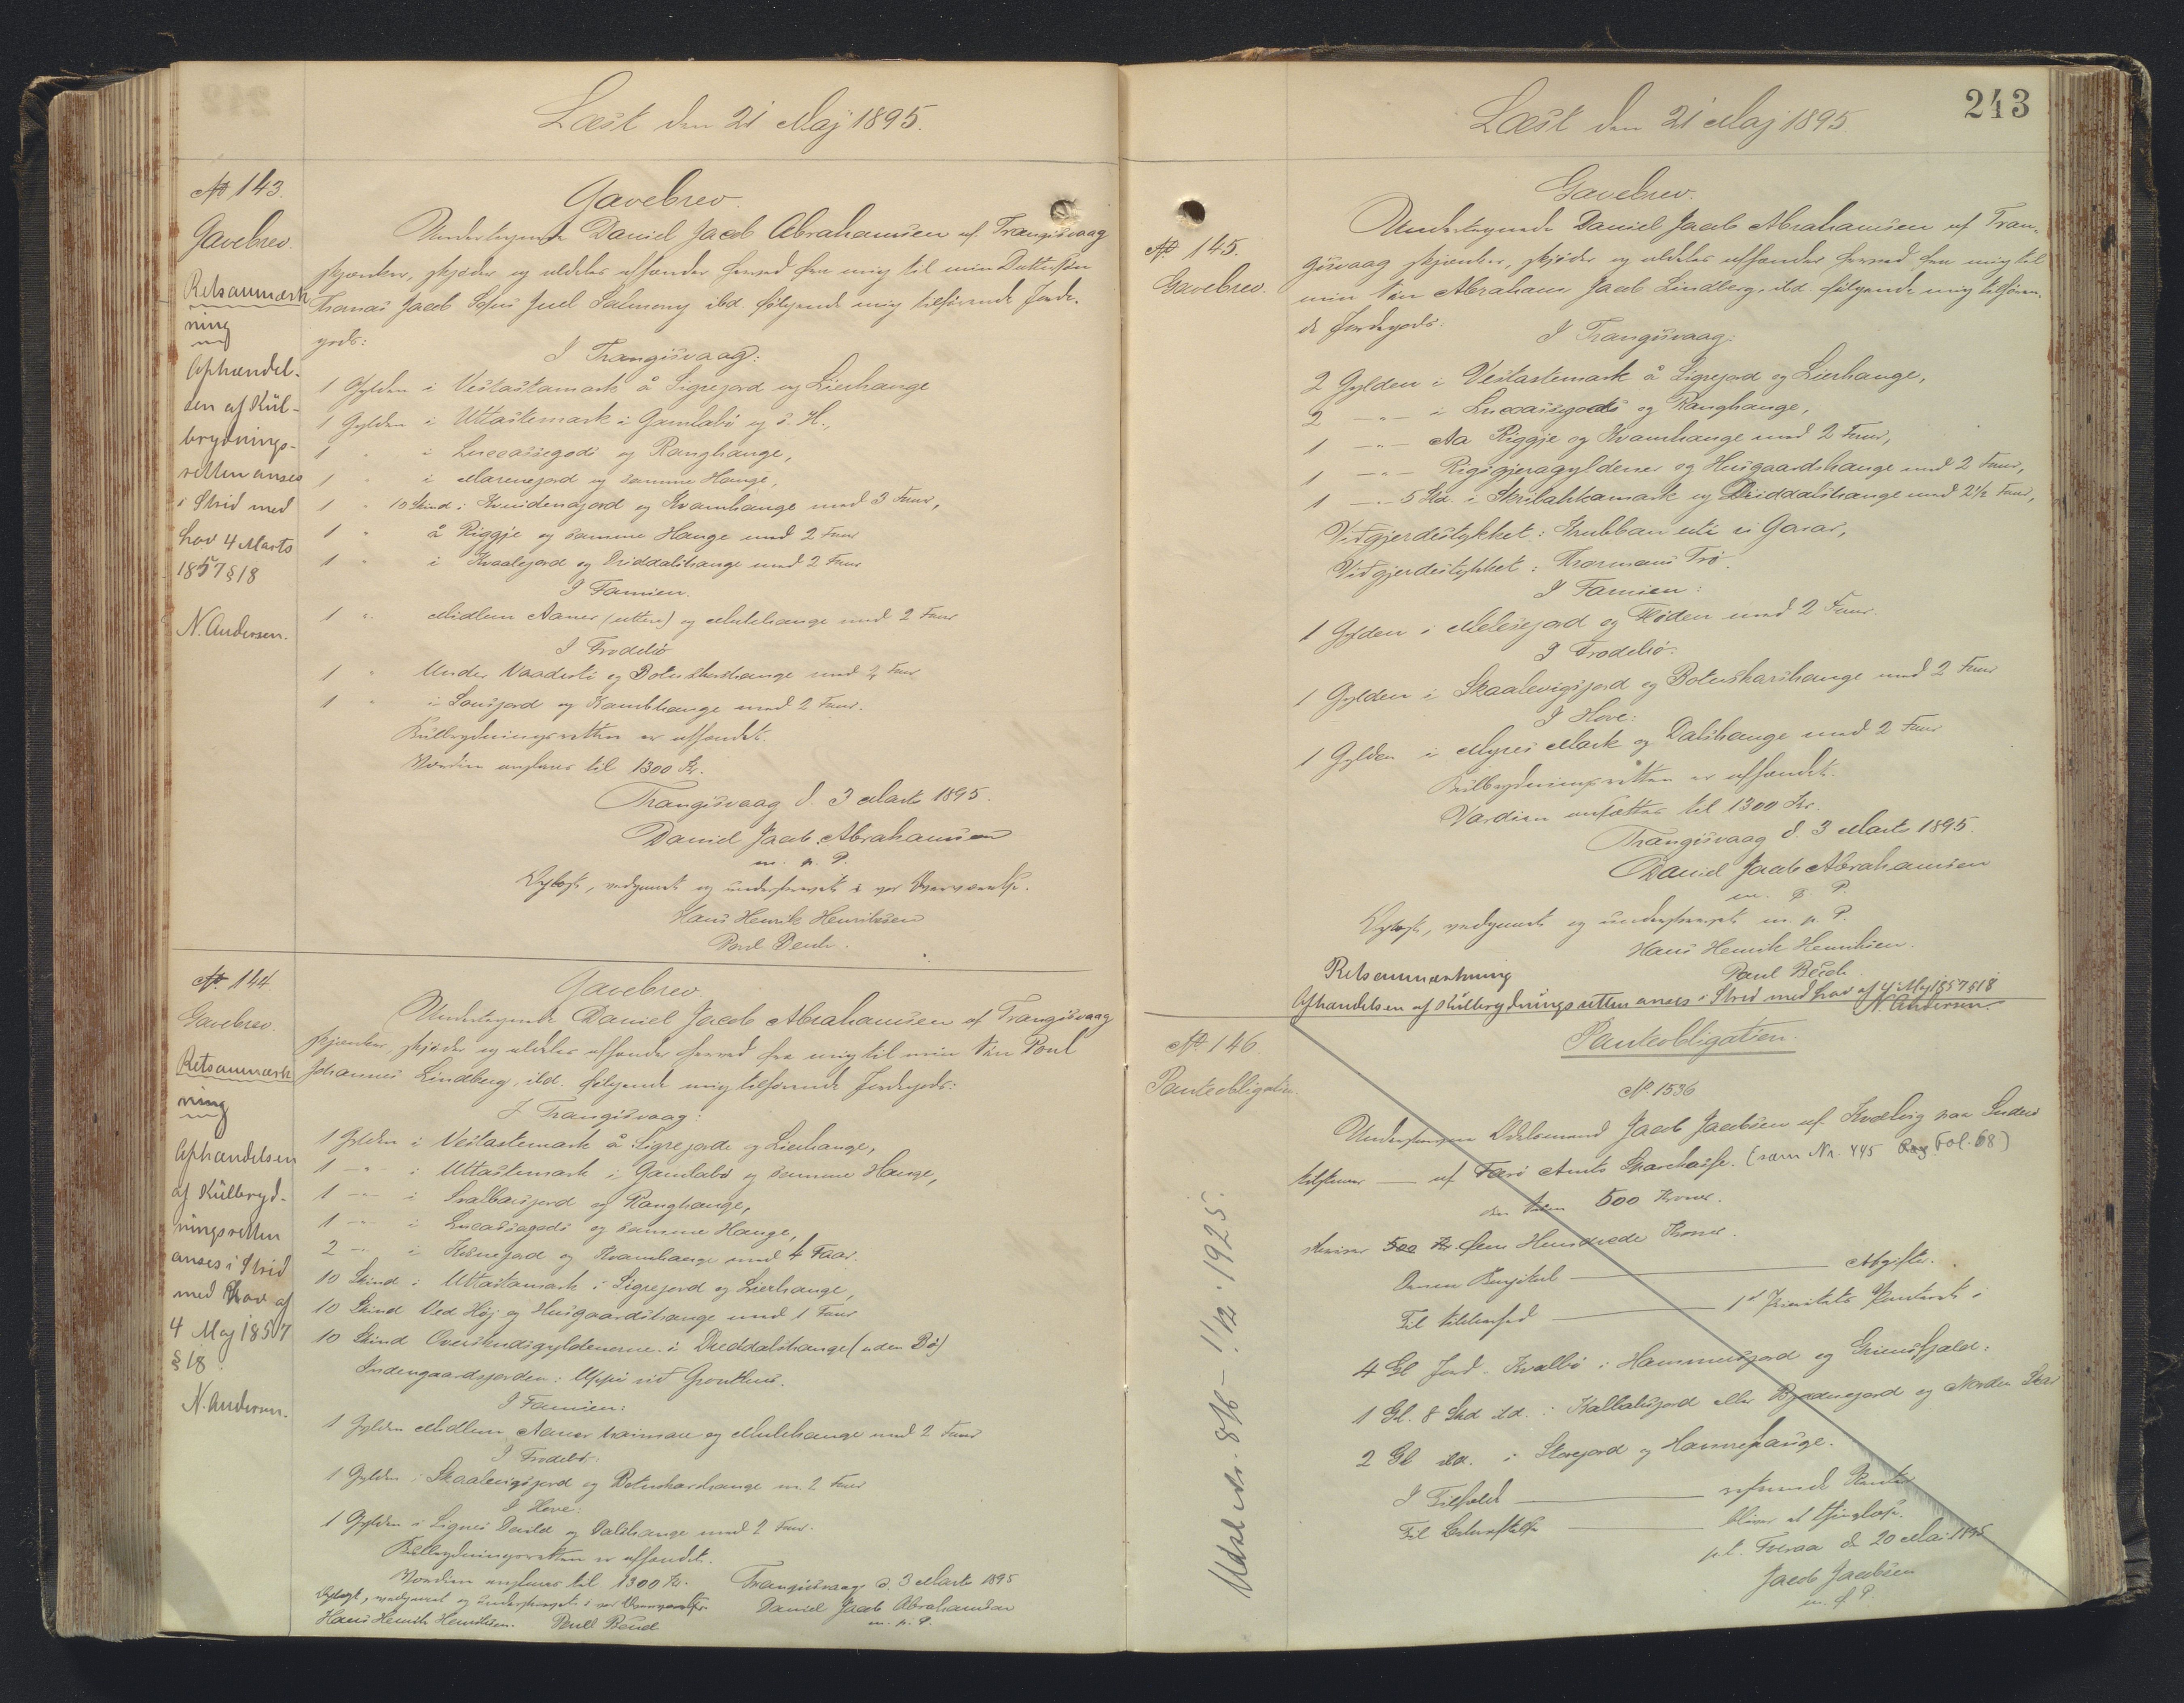 Læst den 21 Maj 1895.
No 143.
Gavebrev.
Retsanmærk
ning
Afhændel-
sen af Kul-
brydnings-
retten anses
i Strid med
Lov 4 Marts
1857 § 18
N. Andersen.
Gavebrev.
Undertegnede Daniel Jacob Abrahamsen af Trangisvaag
skjænker, skjøder og aldeles afhænder herved fra mig til min Dattersøn
Thomas Jacob Sofus Juel Salmony ibd. følgende mig tilhørende Jorde-
gods:
I Trangisvaag:
1 Gylden i Vestastamark å Sigrejord og Lierhange
1 Gylden i Uttastemark i Gamlabø og s. H.,
1 " i Luccassegods og Ranghange,
1 " i Marenejord og samme Hange,
1 " 10 Skind i Kvidenajord og Kvamhange med 3 Faar,
1 " å Riggje og samme Hange med 2 Faar
1 " i Kvaalejord og Driddalshange med 2 Faar
I Famien.
1 " Midlum Aaner (uttere) og Mulehange med 2 Faar
I Frodebø
1 " Under Vaadesti og Botnskarshange med 2 Faar
1 " i Sonsjord og Kambhange med 2 Faar.
Kulbrydningsretten er afhændet.
Værdien anføres til 1300 Kr.
Trangisvaag d. 3 Marts 1895.
Daniel Jacob Abrahamsen
m. p. P.
Oplæst, vedgaaet og underskrevet i vor Overværelse.
Hans Henrik Henriksen
Poul
No 144
Gavebrev.
Retsanmærk
ning
Afhændelsen
af Kulbryd-
ningsretten
anses i Strid
med Lov af
4 Maj 1857
§ 18.
N. Andersen.
Gavebrev
Undertegnede Daniel Jacob Abrahamsen af Trangisvaag
skjænker, skjøder og aldeles afhænder herved fra mig til min Søn Poul
Johannes Lindberg, ibd. følgende mig tilhørende Jordegods:
I Trangisvaag:
1 Gylden i Vestastemark å Sigrejorde og Lierhange,
1 -"- i Uttastemark i Gamlabø og samme Hange,
1 -"- i Svalbarsjord og Ranghange,
1 -"- i Luccassagods og samme Hange,
2 -"- i Kvnejord og Kvamhange med 4 Faar.
10 Skind i Uttastamark i Sigrejord og Lierhange,
10 Skind Ved Høj og Husgaardshange med 1 Faar
10 Skind Overskudsgyldenerne i Dreddalshange (uden Bø)
Indengaardsjorden: Uppi við Grothus.
I Famien:
1 Gylden Midlum Aaner haimare og Mulehange med 2 Faar
I Frodebø:
1 Gylden i Skaalevigsjord og Botnskarshange m. 2 Faar
I Hove:
1 Gylden i Signes Deild og Dalshange med 2 Faar.
Kulbrydningsretten er afhændet.
Værdien anføres til 1300 Kr. Trangisvaag d. 3 Marts 1895
Oplæst, vedgaaet og underskrevet i vor Overværelse Daniel Jacob Abrahamsen
Hans Henrik Henriksen. Poull m. p. P.
243
Læst den 21 Maj 1895.
No 145.
Gavebrev.
Gavebrev.
Undertegnede Daniel Jacob Abrahamsen af Tran-
gisvaag skjænker, skjøder og aldeles afhænder herved fra mig til
min Søn Abraham Jacob Lindberg, ibd. følgende mig tilhøren-
de Jordegods:
I Trangisvaag:
2 Gylden i Vestastemark å Sigrejord og Lierhange,
2 -"- i Luccassegods og Ranghange,
1 -"- Aa Riggje og Kvamhange med 2 Faar,
1 -"- Rigsgjeragyldener og Husgaardshange med 2 Faar,
1 -"- 5 Skd. i Skribahkamark og Driddalshange med 2½ Faar,
Viðgjerdestykket: Krubban uti ui Garar,
Viðgjerdestykket: Thormans Trø.
I Famien:
1 Gylden i Melesejord og Fløden med 2 Faar.
I Frodebø:
1 Gylden i Skaalevigsjord og Botnskarshange med 2 Faar
I Hove:
1 Gylden i Myres Mark og Dalshange med 2 Faar
Kulbrydningsretten er afhændet.
Værdien ansættes til 1300 Kr.
Trangisvaag d. 3 Marts 1895.
Daniel Jacob Abrahamsen
m. p. P.
Oplæst, vedgaaet og underskrevet m. p. P.
Hans Henrik Henriksen.
Poul
Retsanmærkning
Afhændelsen af Kulbrydningsretten anses i Strid med Lov af 4 Maj 1857 § 18
N. Andersen.
No 146
Panteobligation.
Udsl. 8/6 - 11/12. 1925.
Panteobligation.
No. 1536
Underskrevne Odelsmand Jacob Jacobsen af Kvalvig paa Suderø
tilstaaer — af Færø Amts Sparekasse. (sam Nr. 445 Fol. 68)
500 Kroner.
skriver 500 Kr. Fem Hundrede Kroner.
— Afgifter.
Til Sikkerhed — 1ste Prioritets Panteret i
4 Gl. Jord. Kvalbø i Hammersjord og Grimsfjeld:
1 Gl. 8 Skd ibd. i Kalbaksjord eller Bjødnejord og Norden Skar
2 Gl ibd. i Storejord og Hamrehauge.
I Tilfælde — Renter
Til Bekræftelse — bliver at thinglæse.
pt. Tveraa d. 20 Mai 1895
Jacob Jacobsen
m. p. P.